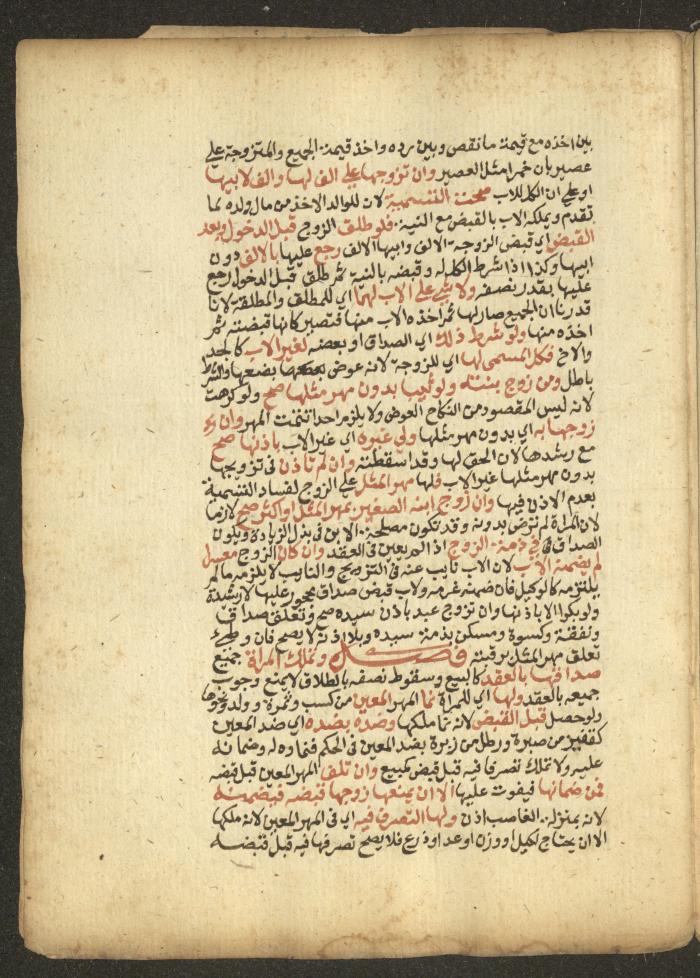 بين اخذه مع قيمة ما نقص وبين رده واخذ قيمة الجميع والمتزوجة على
عصير بان خمرا مثل العصير وان تزوجها على الف لها والف لابيها
او على ان الكل للاب صحت التسمية لان للوالد الاخذ من مال ولده لما
تقدم ويملكه الاب بالقبض مع النية فلو طلق الزوج قبل الدخول وبعد
القبض اي قبض الزوجة الالف وابيها الالف رجع عليها بالالف دون
ابيها وكذا اذا شرط الكل له وقبضه بالنية ثم طلق قبل الدخول رجع
عليها بقدر نصفه ولا شي على الاب لهما اي للمطلق والمطلقة لانا
قدرنا ان الجميع صار لها ثم اخذه الاب منها فتصير كانها قبضته ثم
اخذه منها ولو شرط ذلك اي الصداق او بعضه لغير الاب كالجد
والاخ فكل المسمى لها اي للزوجة لانه عوض بضعها والشرط
باطل ومن زوج بنته ولو ثيبا بدون مهر مثلها صح ولو كرهت
لانه ليس المقصود من النكاح العوض ولا يلزم احدا تتمت المهر وان
زوجها به اي بدون مهر مثلها ولي غيره اي غير الاب باذنها صح
مع رشدها لان الحق لها وقد اسقطته وان لم تاذن في تزويجها
بدون مهر مثلها غير الاب فلها مهر المثل على الزوج لفساد التسمية
بعدم الاذن فيها وان زوج ابنه الصغير بمهر المثل او اكثر صح لازما
لان المراة لم ترض بدونه وقد تكون مصلحة الابن في بذل الزيادة ويكون
الصداق في ذمة الزوج اذا لم يعين في العقد وان كان الزوج معسرا
لم يضمنه الاب لان الاب نايب عنه في التزويج والنايب لا يلزمه ما لم
يلتزمه كالوكيل فان ضمنه غرمه ولاب قبض صداق محجور عليها لا رشيدة
ولو بكرا الا باذنها وان تزوج عبد باذن سيده صح وتعلق صداق
ونفقة وكسوة ومسكن بذمة سيده وبلا اذنه لا يصح فان وطئ
تعلق مهر المثل برقبته فصل وتملك المراة جميع
صداقها بالعقد كالبيع وسقوط نصفه بالطلاق لا يمنع وجوب
جميعه بالعقد ولها اي للمراة نما المهر المعين من كسب وثمرة وولد ونحوها
ولو حصل قبل القبض لانه نما ملكها وضده بضده اي ضد المعين
كقفيز من صبرة ورطل من زبرة بضد المعين في الحكم فنماوه له وضمانه
عليه ولا تملك تصرفا فيه قبل قبض كمبيع وان تلف المهر المعين قبل قبضه
فمن ضمانها فيفوت عليها الا ان يمنعها زوجها قبضه فيضمنه
لانه بمنزلة الغاصب اذن ولها التصرف فيه اي في المهر المعين لانه ملكها
الا ان يحتاج لكيل او وزن او عد او ذرع فلا يصح تصرفها فيه قبل قبضه